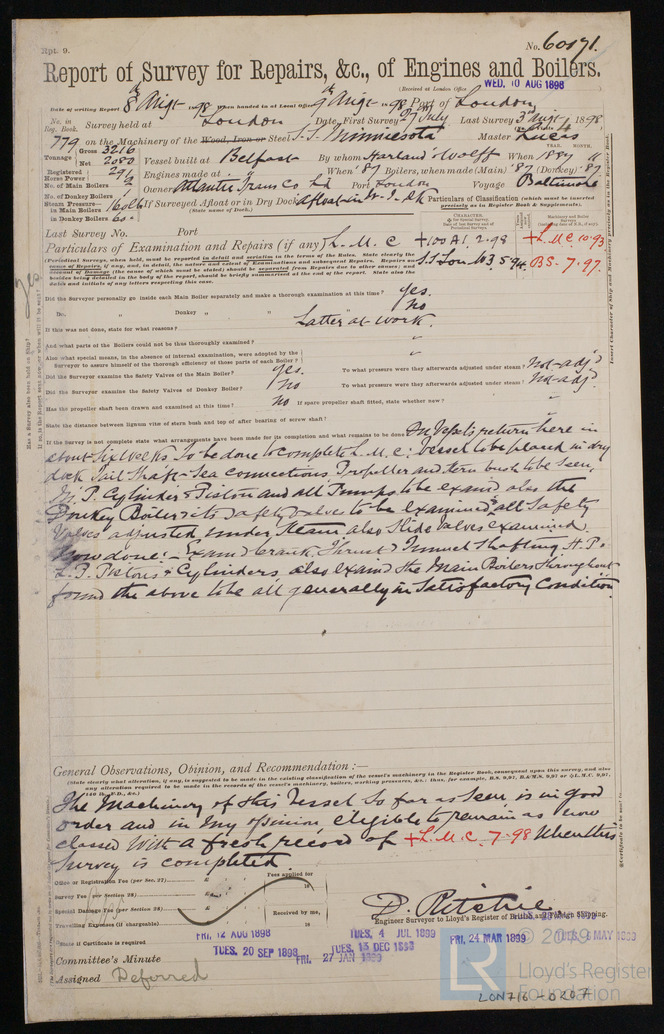 Rpt. 9.
No. 60171.
Report of Survey for Repairs, &c., of Engines and Boilers.
(Received at London Office WED. 10 AUG 1898
Date of writing Report 8th Augt 1898. When handed in at Local Office 9th Augt 1898. Port of London
No. in Reg. Book. Survey held at London Date, First Survey 27 July Last Survey 3rd Augt 1898
779 on the Machinery of the Wood, Iron or Steel S.S. Minniesota Master Lucas
Tonnage Gross 3216 Net 2080 Vessel built at Belfast By whom Harland & Wolff When 1887 11
YEAR. MONTH.
Registered Horse Power 296 Engines made at " When '87 Boilers, when made (Main) '87 (Donkey) '87
No. of Main Boilers 2
No. of Donkey Boilers 1 Owners Atlantic Trans Co Ld Port London Voyage Baltimore
Steam Pressure in Main Boilers 160 lb If Surveyed Afloat or in Dry Dock Afloat in
(State name of Dock.)
in Donkey Boilers 60 "
Particulars of Classification (which must be inserted precisely as in Register Book & Supplements):
Last Survey No. Port
Particulars of Examination and Repairs (if any) L.M.C
+100A1. 2.98
+L.M.C. 10.93
BS. 7.97.
Did the Surveyor personally go inside each Main Boiler separately and make a thorough examination at this time? Yes.
Do. " Donkey " " " No
If this was not done, state for what reasons? Latter at work.
And what parts of the Boilers could not be thus thoroughly examined? "
Also what special means, in the absence of internal examination, were adopted by the
Surveyor to assure himself of the thorough efficiency of those parts of each Boiler? "
Did the Surveyor examine the Safety Valves of the Main Boiler? Yes. To what pressure were they afterwards adjusted under steam? Not adjd
Did the Surveyor examine the Safety Valves of Donkey Boiler? No To what pressure were they afterwards adjusted under steam? Not adjd
Has the propeller shaft been drawn and examined at this time? No If spare propeller shaft fitted, state whether new? "
State the distance between lignum vitæ of stern bush and top of after bearing of screw shaft? "
If the Survey is not complete state what arrangements have been made for its completion and what remains to be done On Vessels return here in
about Six Weeks. To be done to complete L.M.C; Vessel to be placed in dry
dock Tail Shaft & Sea Connections Propeller and stern bush to be seen,
In. P. Cylinder & Piston and all Pumps to be examd also the
Donkey Boiler & its safety valves to be examined & all Safety
Valves adjusted under steam also Slide valves examined.
Now done:- Examd Crank, Thrust & Tunnel Shafting H.P.
L.P. Pistons & Cylinders, also examd the Main Boilers throughout
found the above to be all generally in Satisfactory Condition
General Observations, Opinion, and Recommendation:—
(State clearly what alteration, if any, is suggested to be made in the existing classification of the vessel's machinery in the Register Book, consequent upon this survey, and also
any alteration required to be made in the records of the vessel's machinery, boilers, working pressures, &c.; thus, for example, B.S. 9,97, B.&M.S. 9,97 or L.M.C. 9,97,
The Machinery of this Vessel so far as seen, is in good
order and in my opinion eligible to remain as now
classed With a fresh record of +L.M.C. 7-98 When this
Survey is completed.
Office or Registration Fee (per Sec. 27) Fees applied for
Survey Fee (per Section 28)
Special Damage Fee (per Section 28) Received by me,
Travelling Expenses (if chargeable)
D. Ritchie
Engineer Surveyor to Lloyd's Register of British and Foreign Shipping.
State if Certificate is required
FRI. 12 AUG 1898
TUES. 4 JUL 1899
FRI. 24 MAR 1899
TUES. 20 SEP 1898
TUES. 13 DEC 1898
FRI. 27 JAN 1899
Committee's Minute
Assigned Deferred
© 2019
LR
Lloyd's Register
Foundation
LON716-0207